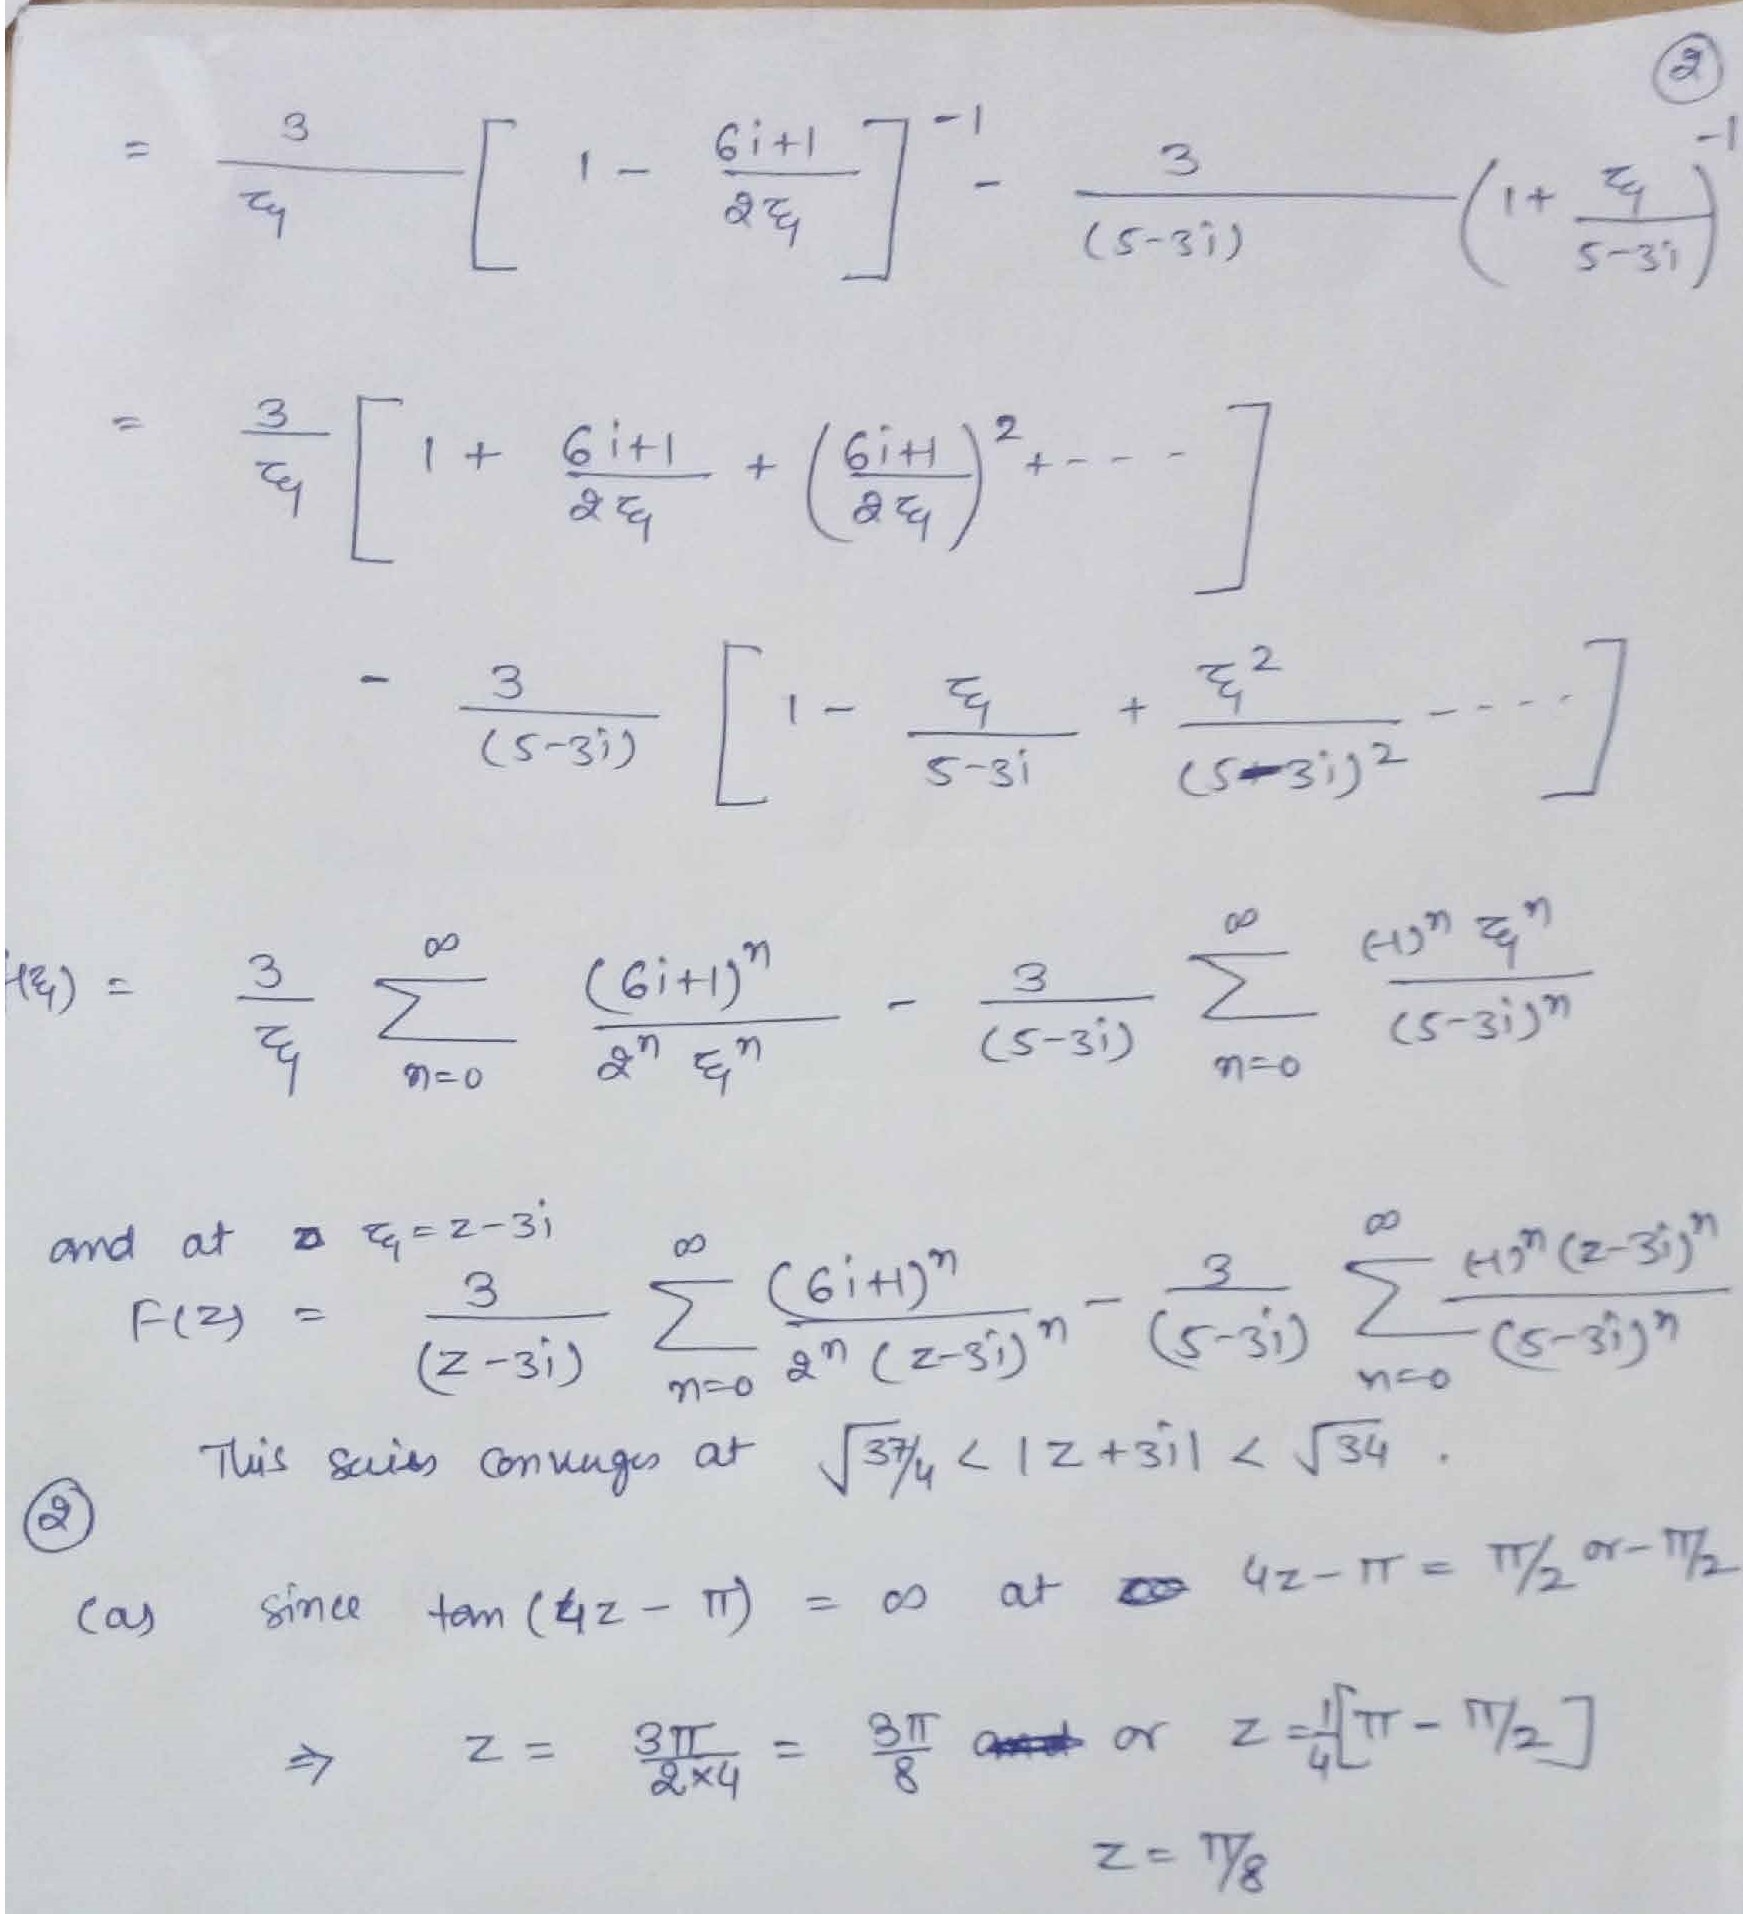 ②
= 3/ξ [ 1 - (6i+1)/(2ξ) ]^-1 - 3/(5-3i) (1 + ξ/(5-3i))^-1
= 3/ξ [ 1 + (6i+1)/(2ξ) + ((6i+1)/(2ξ))^2 + - - - - ]
- 3/(5-3i) [ 1 - ξ/(5-3i) + ξ^2/(5-3i)^2 - - - - - ]
(ξ) = 3/ξ ∑_{n=0}^{∞} (6i+1)^n/(2^n ξ^n) - 3/(5-3i) ∑_{n=0}^{∞} (-1)^n ξ^n/(5-3i)^n
and at ξ = z-3i
F(z) = 3/(z-3i) ∑_{n=0}^{∞} (6i+1)^n/(2^n (z-3i)^n) - 3/(5-3i) ∑_{n=0}^{∞} (-1)^n (z-3i)^n/(5-3i)^n
This series converges at √37/4 < |z+3i| < √34 .
②
(a) since tan (4z - π) = ∞ at 4z-π = π/2 or -π/2
⇒ z = 3π/(2×4) = 3π/8 or z = 1/4[π - π/2]
z = π/8